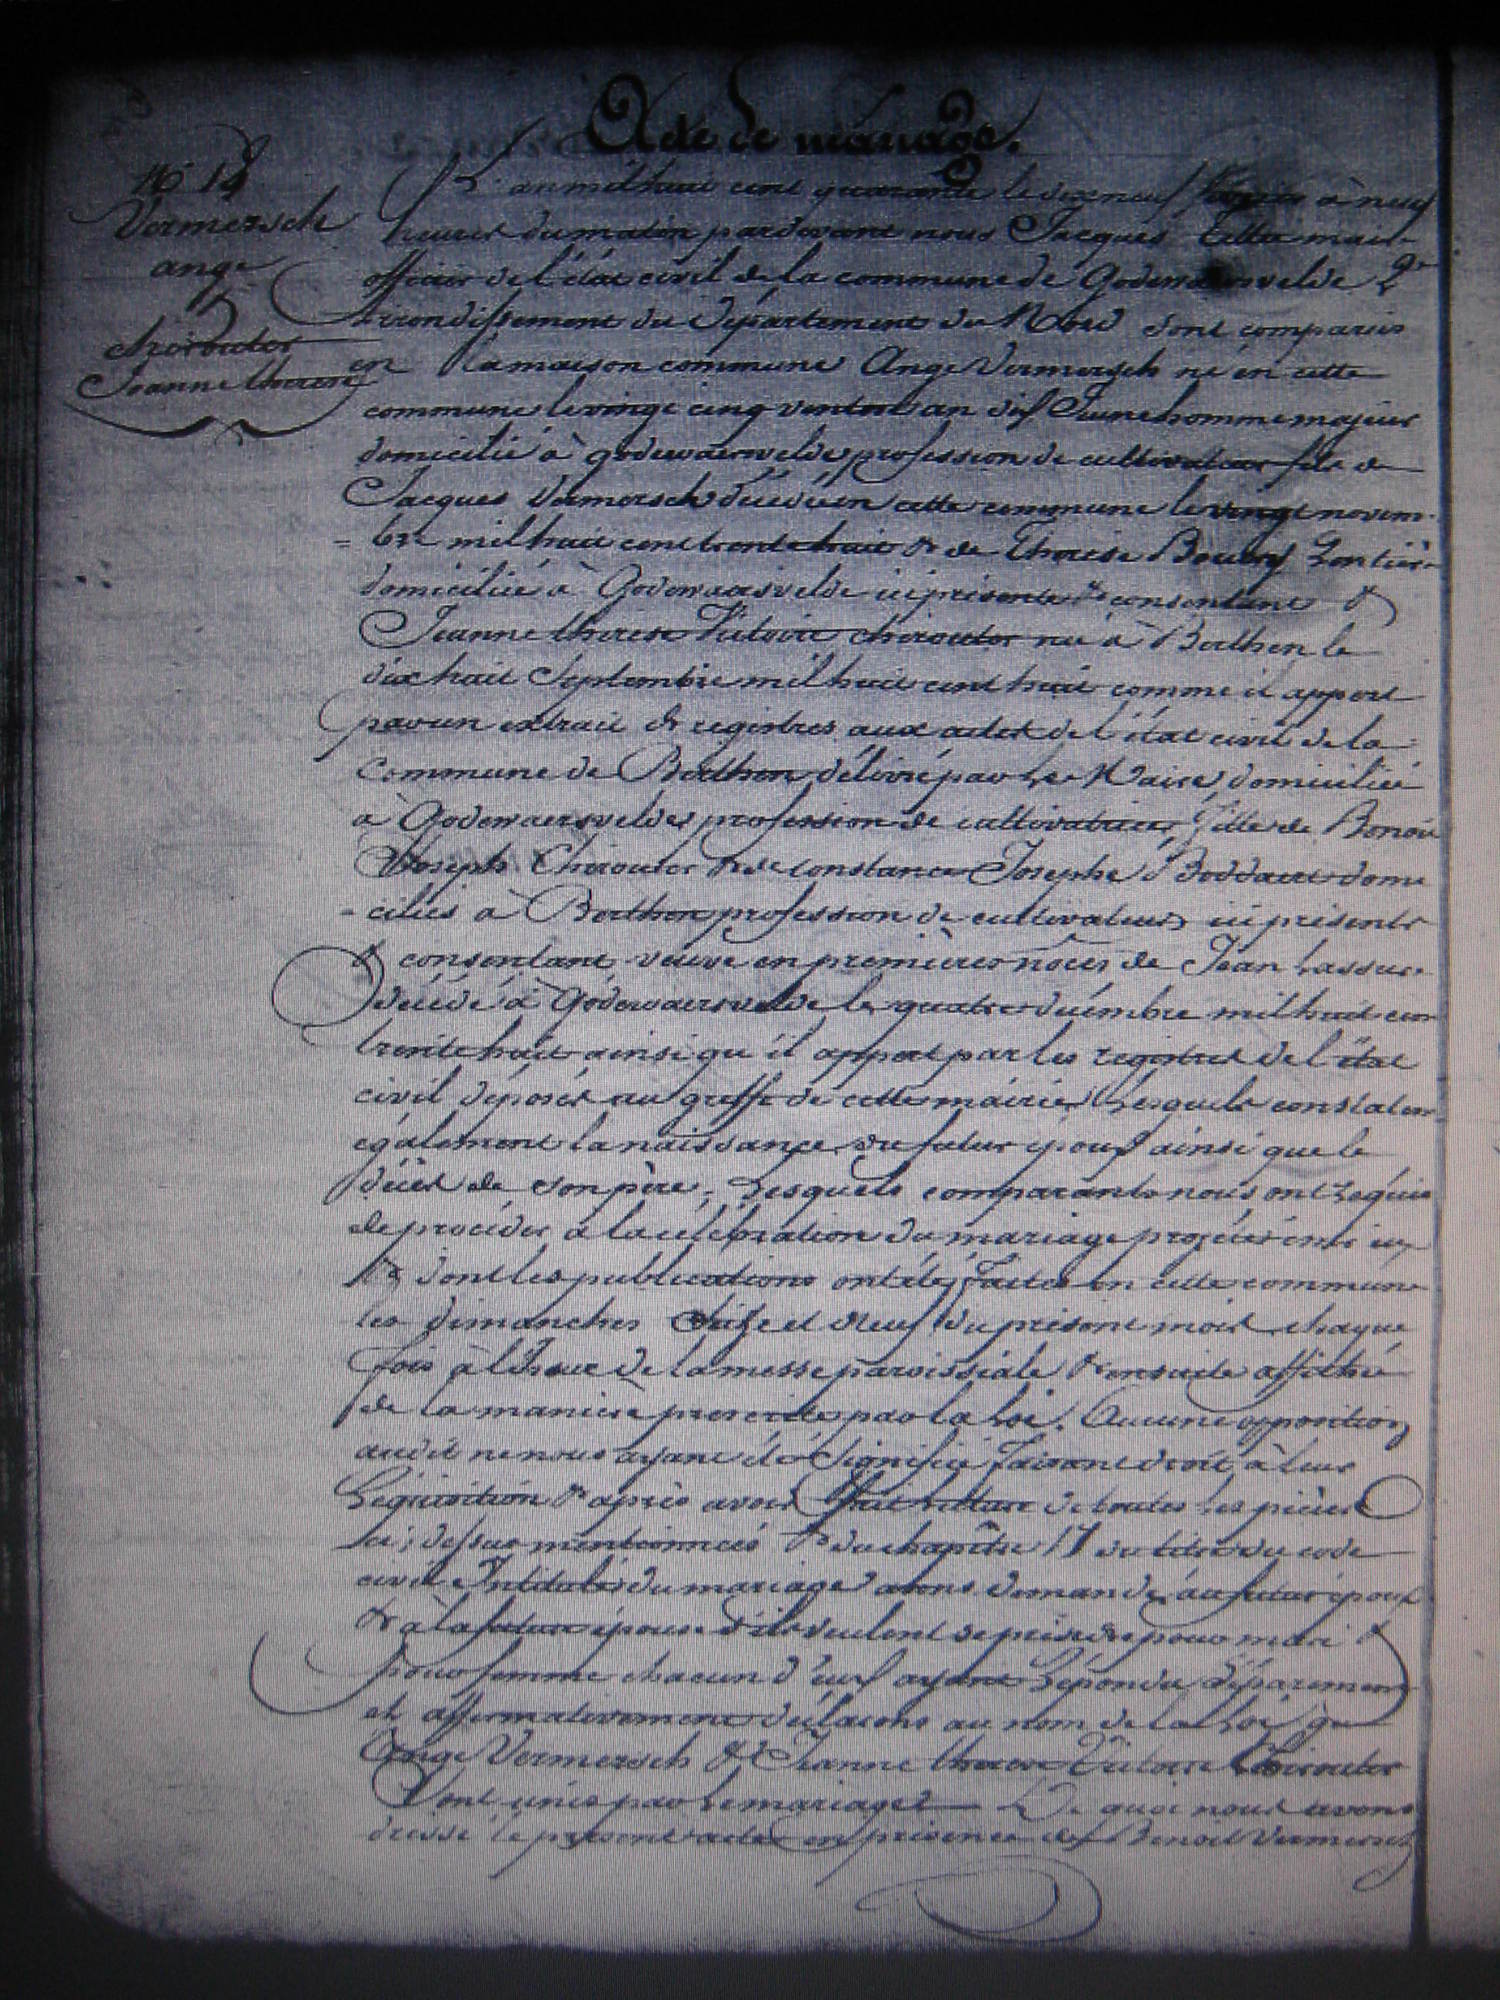 Acte de mariage.
N° 18
Vermersch
ange
&
chiroutre
Jeanne therese
L'an mil huit cent quarante le dix neuf à neuf
heures du matin par devant nous Jacques maire
officier de l'état civil de la commune de Godewaersvelde 2e
arrondissement du Département du Nord sont comparus
en la maison commune Ange Vermersch né en cette
commune le vingt cinq ventose an dix Jeune homme majeur
domicilié à godewaersvelde profession de cultivateur fils de
Jacques Vermersch décédé en cette commune le vingt novem
= bre mil huit cent trente huit & de Therese domiciliée à Godewaersvelde ici présente & consentante &
Jeanne therese Victoire chiroutre née à Berthen le
dix huit Septembre mil huit cent huit comme il appert
par un extrait de registres aux actes de l'état civil de la
Commune de Berthen délivré par le Maire, domiciliée
à Godewaersvelde profession de cultivatrice, fille de Benoit
Joseph Chiroutre & de constance Josephe Boddaert domi
= ciliés à Berthen profession de cultivateurs ici présents
& consentant veuve en premières nôces de Jean
décédé à Godewaersvelde le quatre décembre mil huit cent
trente huit ainsi qu'il appert par les registres de l'état
civil déposés au greffe de cette mairie, Lesquels constatent
également la naissance du futur époux ainsi que le
décès de son père, Lesquels comparants nous ont requis
de procéder à la célébration du mariage projeté entre eux
& dont les publications ont été faites en cette commune
les dimanches et neuf du présent mois chaque
fois à l'Issue de la messe paroissiale & ensuite affiché
de la manière prescrite par la Loi. Aucune opposition
audit ne nous ayant été Signifiée faisant droit à leur
Réquisition & après avoir fait lecture de toutes les pièces
ci-dessus mentionnées & du chapitre du titre du code
civil Intitulé du mariage avons demandé au futur époux
& à la future épouse s'ils veulent se prendre pour mari &
pour femme chacun d'eux ayant Répondu Séparement
et affirmativement déclarons au nom de la Loi que
Ange Vermersch & Jeanne therese Victoire Chiroutre
Sont unis par le mariage De quoi nous avons
dressé le présent acte en présence de Benoit Vermersch